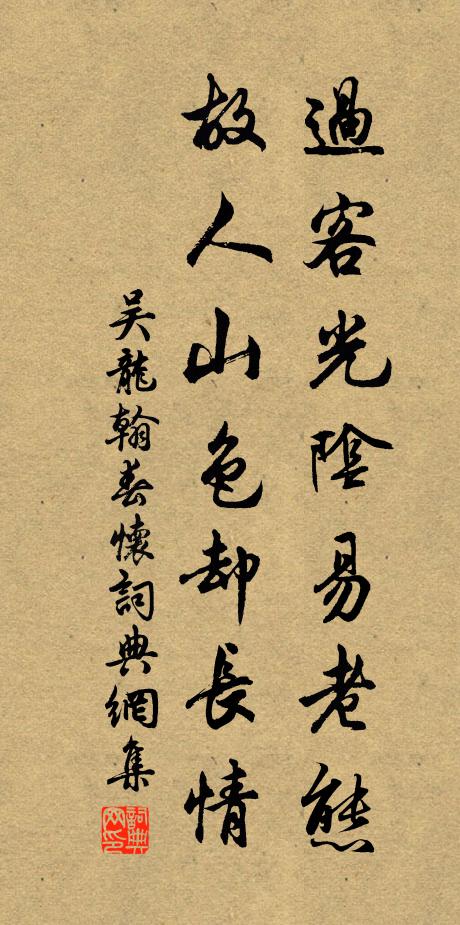 過客光陰易老態
故人山色却長情
吴龍翰春懷詞典網集
詞典网印